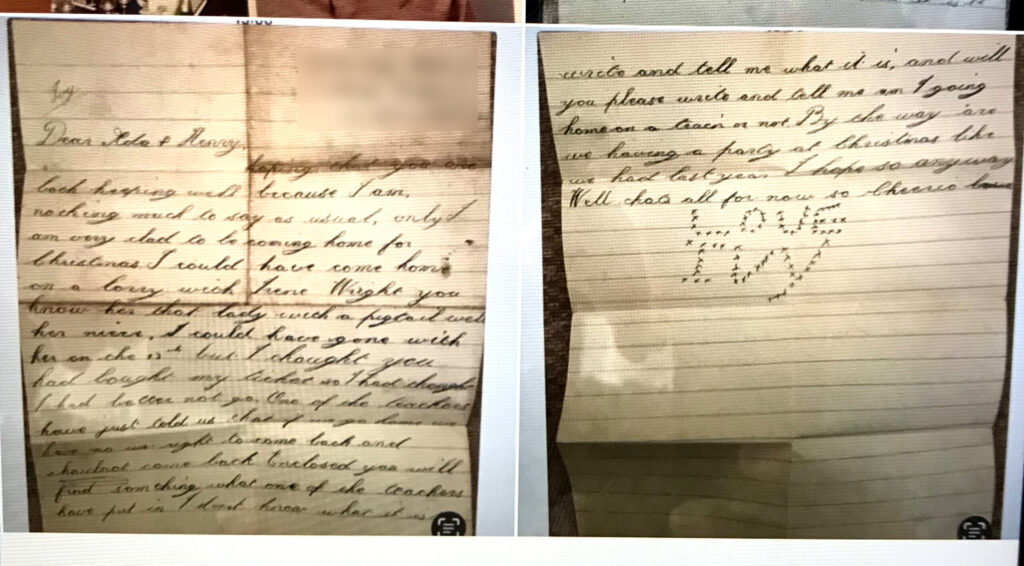 Dear Ada & Henry,
hoping that you are
both keeping well because I am,
nothing much to say as usual, only I
am very glad to be coming home for
Christmas I could have come home
on a lorry with Irene Wright you
know her that lady with a pigtail well
her niece. I could have gone with
her on the 12th but I thought you
had bought my ticket so I had thought
I had better not go. One of the teachers
have just told us that if we go home we
have no right to come back and
should not come back Enclosed you will
find something what one of the teachers
have put in I dont know what it is
write and tell me what it is, and will
you please write and tell me am I going
home on a train or not By the way are
we having a party at Christmas like
we had last year I hope so anyway
Well thats all for now so Cheerio love